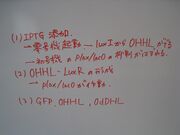 (1) IPTG 添加
→ 零号機起動 → luxIから OHHLができる
→ 初号機の plux/lacOの抑制がはずれる。
(2) OHHL-LuxRの形成
→ plux/lacOが作動。
(3) GFP, OHHL, OdDHL